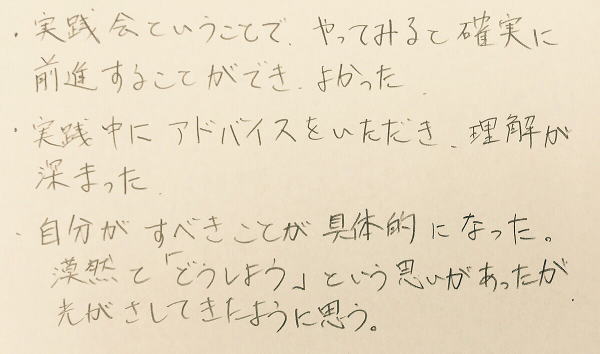 ・実践会ということで、やってみると確実に
前進することができ、よかった。
・実践中にアドバイスをいただき、理解が
深まった。
・自分がすべきことが具体的になった。
漠然と「どうしよう」という思いがあったが
光がさしてきたように思う。